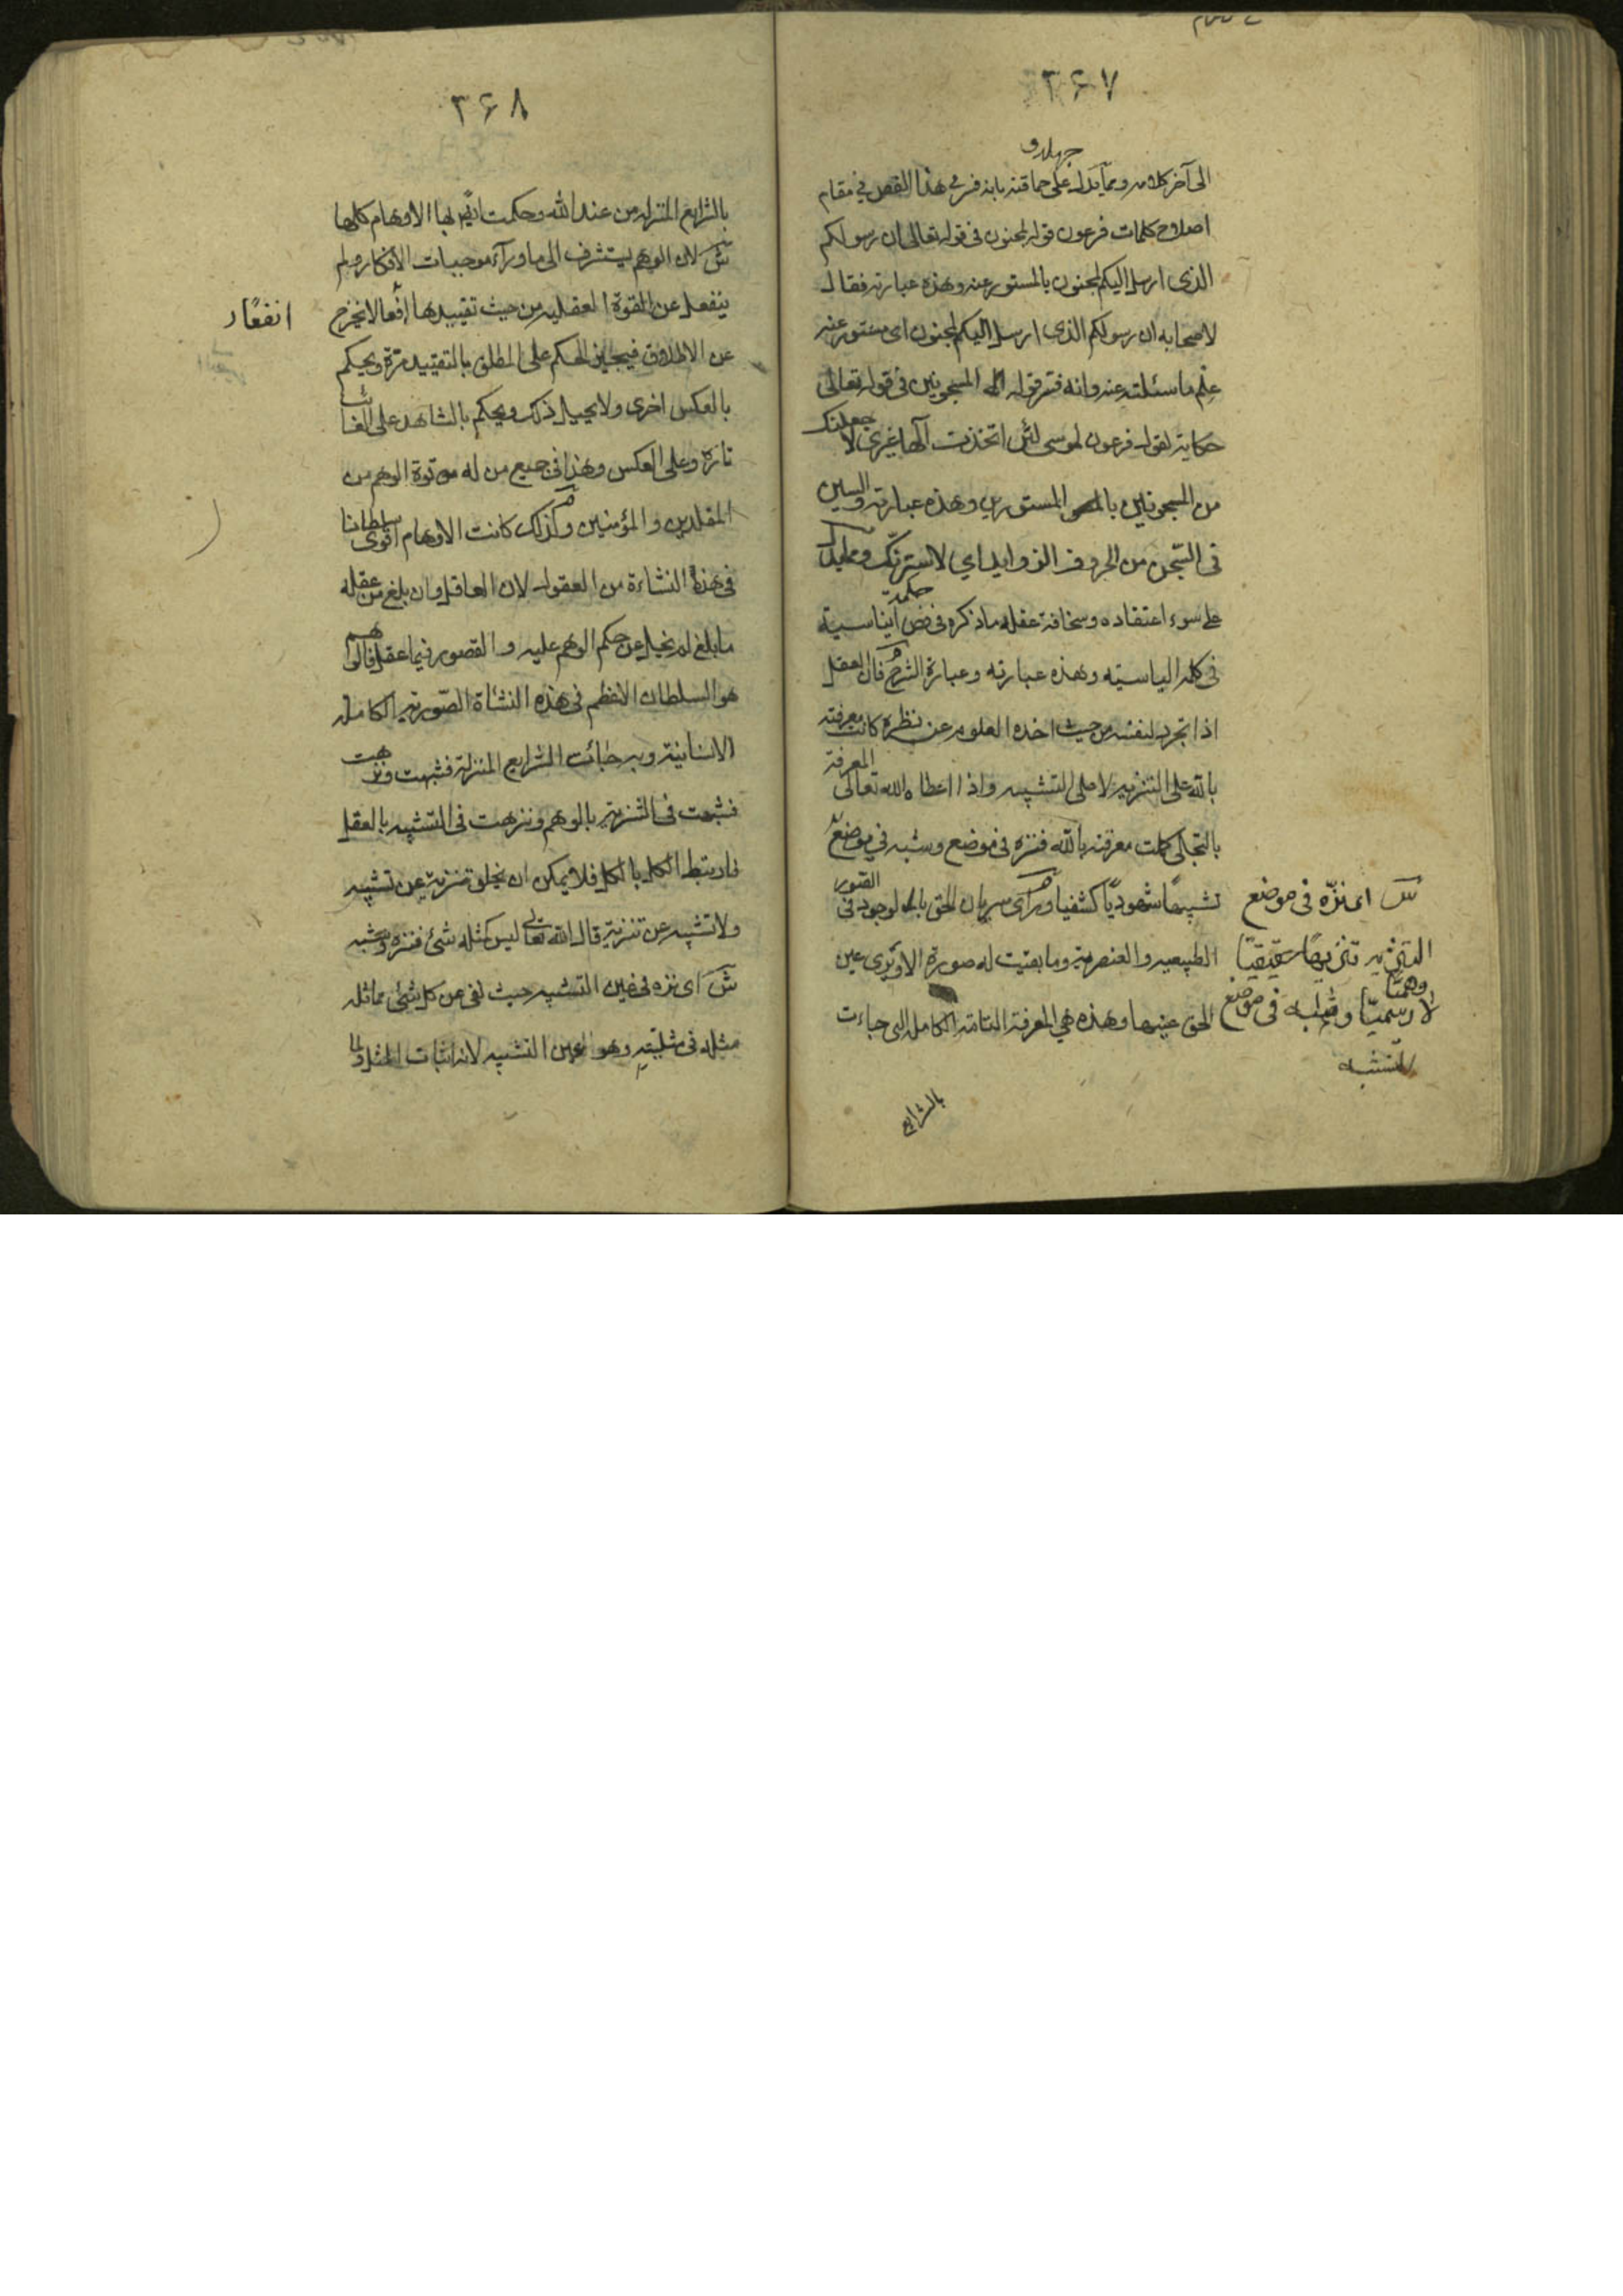 ٣۶٧
جهله و
الى آخر كلامه ومما يدل على حماقته بانه فى هذا الفص فى مقام
اصلاح كلمات فرعون قوله لمجنون فى قوله تعالى ان رسولكم
الذى ارسل اليكم لمجنون بالمستور عنه وهذه عبارته فقال
لاصحابه ان رسولكم الذى ارسل اليكم لمجنون اى مستور عنه
علم ما سئلته عنه وانه فسر قوله المسجونين فى قوله تعالى
حكاية لقول فرعون لموسى لئن اتخذت آلها غيرى لاجعلنك
من المسجونين المستورين وهذه عبارته والسين
فى السجن من الحروف الزوايد اى لاسترنك ومما يدل
على سوء اعتقاده وسخافة عقله ما ذكره فى فص حكمة ايناسية
فى كلمة الياسية وهذه عبارته وعبارة الشرح فان العقل
اذا تجرد لنفسه من حيث اخذه العلوم عن نظره كانت معرفته
بالله على التنزيه لا على التشبيه واذا اعطاه الله تعالى المعرفة
بالتجلى كملت معرفته بالله فنزه فى موضع وشبه فى موضع
تشبيها شهوديا كشفيا ورأى سريان الحق بالوجود فى الصور
الطبيعيه والعنصريه وما بقيت له صورة الا ويرى عين
الحق عينها وهذه هى المعرفة التامة الكاملة التى جاءت
ش اى نزه فى موضع
التنزيه تنزيها حقيقيا
لا رسميا وهميا وشبه فى موضع
التشبيه
بالشرايع
٣۶٨
بالشرايع المنزله من عند الله وحكمت ايضا بها الاوهام كلها
ش لان الوهم يستشرف الى ما ورآء موجبات الافكار ولم
ينفعل عن القوة العقليه من حيث تقييدها انفعالا يخرج
عن الاطلاق فيجيز الحكم على المطلق بالتقييد مرة ويحكم
بالعكس اخرى ولا يحيل ذلك ويحكم بالشاهد على الغائب
تارة وعلى العكس وهذا فى جميع من له قوة الوهم من
المقلدين والمؤمنين ولذلك كانت الاوهام اقوى سلطانا
فى هذه النشاءة من العقول لان العاقل وان بلغ من عقله
ما بلغ لم يخل عن حكم الوهم عليه والتصور فيما عقل فالوهم
هو السلطان الاعظم فى هذه النشاة الصوريه الكامله
الانسانية وبه جائت الشرايع المنزلة فشبهت ونزهت
فشبهت فى التنزيه بالوهم ونزهت فى التشبيه بالعقل
فارتبط الكل بالكل فلا يمكن ان يخلو تنزيه عن تشبيه
ولا تشبيه عن تنزيه قال الله تعالى ليس كمثله شئ فنزه وشبه
ش اى نزه فى عين التشبيه حيث نفى عن كل شئ مماثلة
مثله فى مثليته وهو عين التشبيه لانه اثبات المثل ولما
انفعا